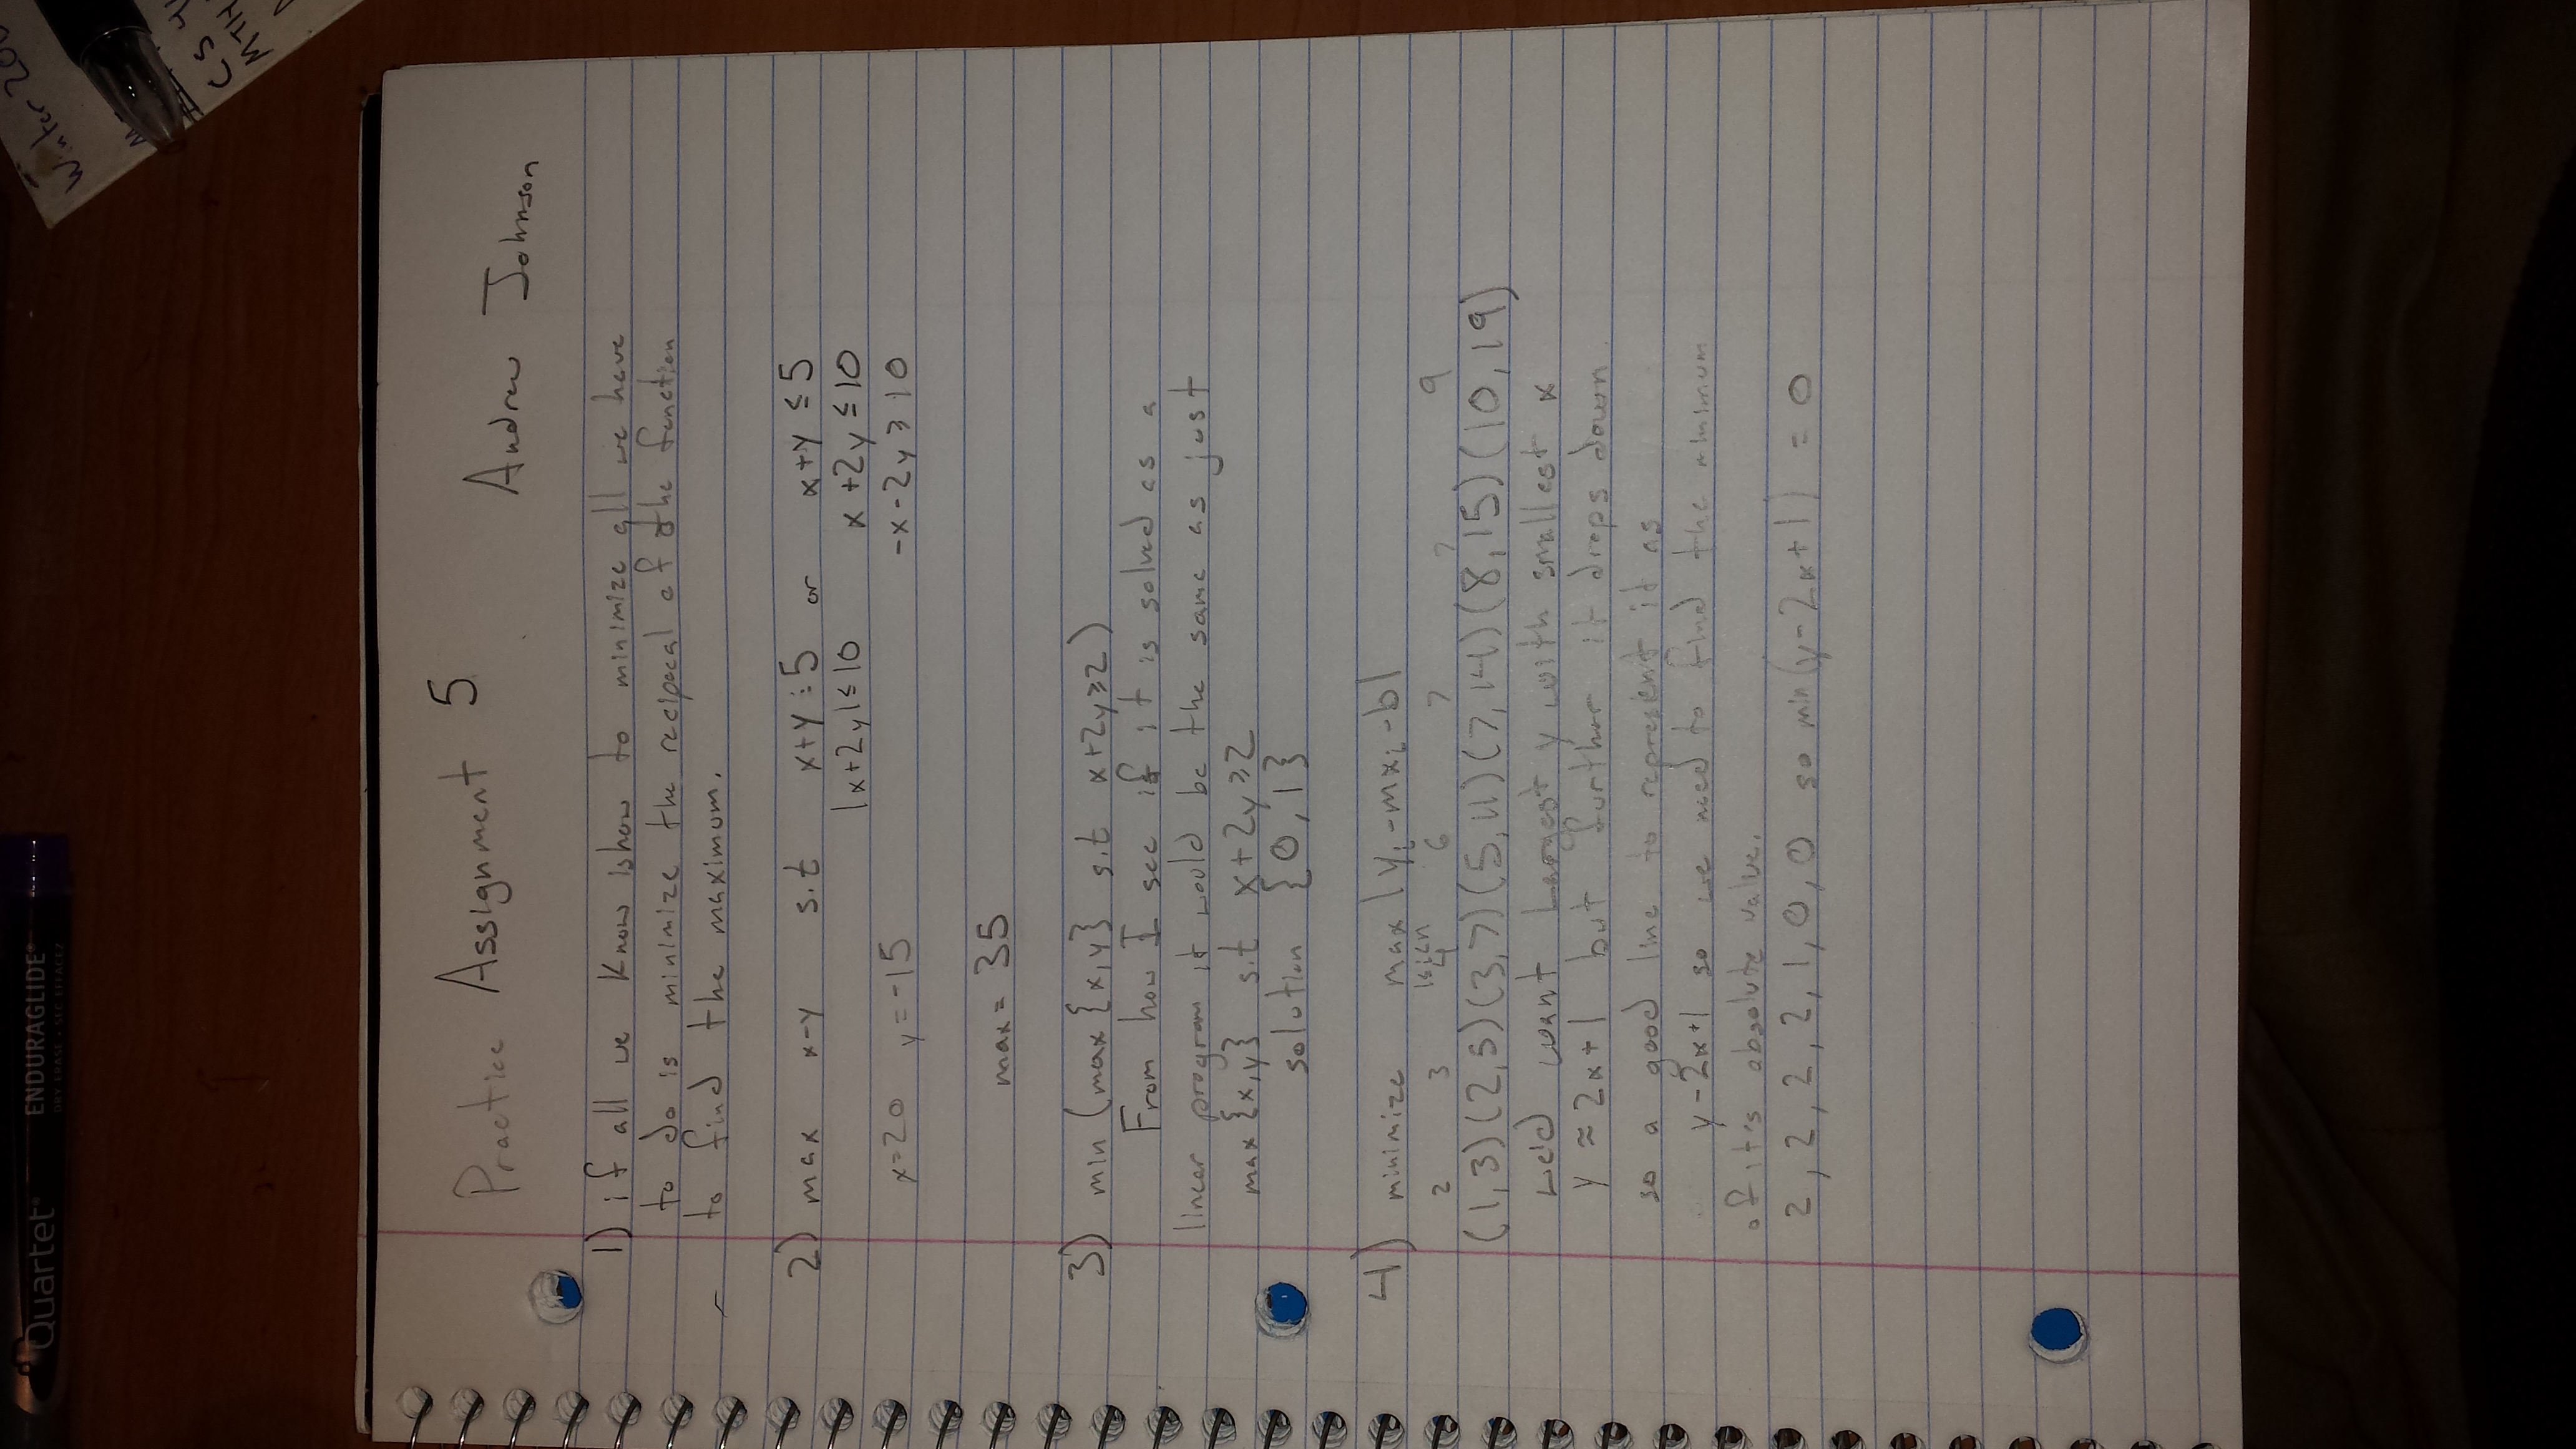 Quartet®
ENDURAGLIDE®
DRY ERASE • SEC EFFACEZ
Winter
CS
MTH
Practice Assignment 5
Andrew Johnson
1) if all we know is how to minimize all we have
to do is minimize the reciprocal of the function
to find the maximum.
2) max x-y s.t x+y ≤ 5 or x+y ≤ 5
|x+2y| ≤ 10 x+2y ≤ 10
x=20 y=-15 -x-2y ≥ 10
max = 35
3) min (max {x,y} s.t x+2y≥2)
From how I see if it is solved as a
linear program it would be the same as just
max {x,y} s.t x+2y≥2
solution {0,1}
4) minimize max |yᵢ-mxᵢ-b|
1≤i≤n
2 3 4 6 7 7 9
(1,3)(2,5)(3,7)(5,11)(7,14)(8,15)(10,19)
We'd want Largest y with smallest x
y ≈ 2x+1 but further it drops down
so a good line to represent it as
y-2x+1 so we need to find the minimum
of it's absolute value.
2, 2, 2, 2, 1, 0, 0 so min(y-2x+1) = 0